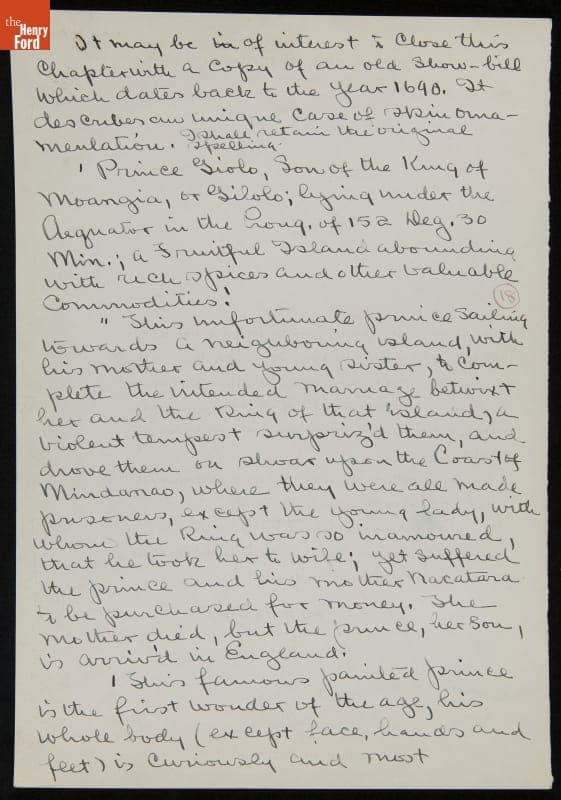 the
Henry
Ford
It may be in of interest to close this
Chapter with a copy of an old show-bill
which dates back to the year 1690. It
describes an unique case of skin orna-
mentation. I shall retain the original
spelling.
' Prince Giolo, Son of the King of
Moangia, or Gilolo; lying under the
Aequator in the Long. of 152 Deg. 30
Min.; a Fruitful Island abounding
with rich spices and other valuable
Commodities!
18
" This unfortunate prince sailing
towards a neighbouring island, with
his mother and young sister, to com-
plete the intended marriage betwixt
her and the King of that island, a
violent tempest surpriz'd them, and
drove them on shoar upon the Coast of
Mindanao, where they were all made
prisoners, except the young lady, with
whom the King was so inamoured,
that he took her to wife; yet suffered
the prince and his mother Nacatara
to be purchased for money. The
mother died, but the prince, her son,
is arriv'd in England.
' This famous painted prince
is the first wonder of the age, his
whole body (except face, hands and
feet) is curiously and most